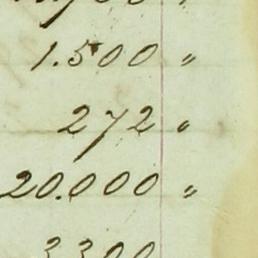 1.500 "
272 "
20.000 "